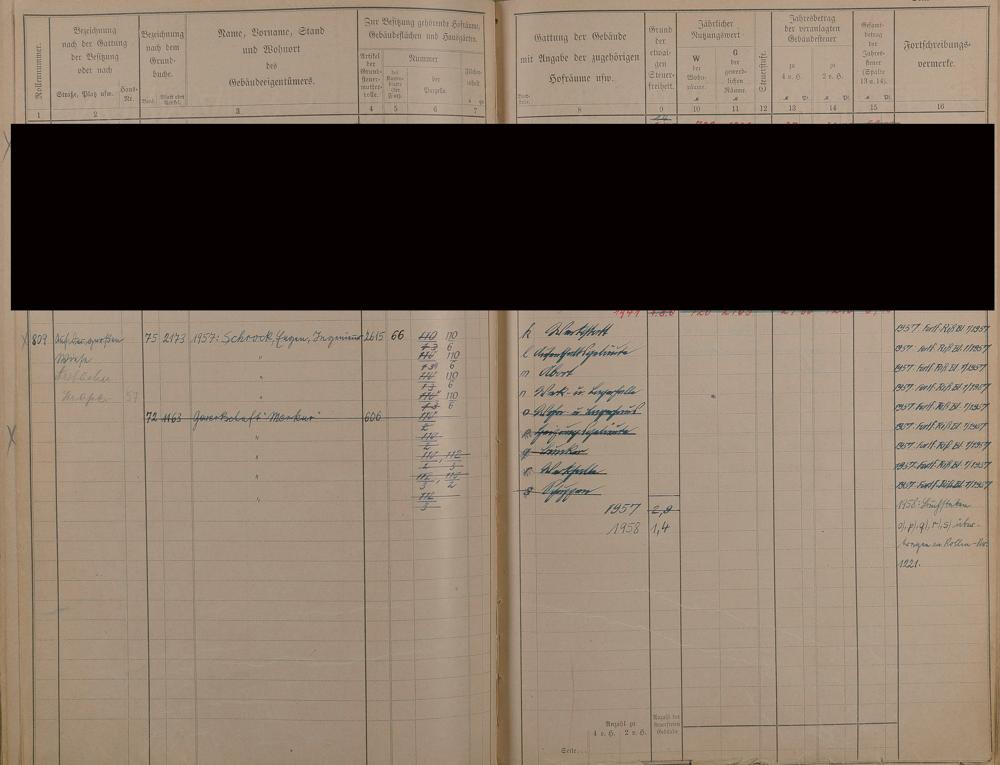 Rollennummer.
Bezeichnung
nach der Gattung
der Besitzung
oder nach
Straße, Platz usw.
Haus-
Nr.
Bezeichnung
nach dem
Grund-
buche.
Band
Blatt oder
Artikel.
Name, Vorname, Stand
und Wohnort
des
Gebäudeeigentümers.
Zur Besitzung gehörende Hofräume,
Gebäudeflächen und Hausgärten.
Artikel
der
Grund-
steuer-
mutter-
rolle.
Nummer
des
der
Parzelle.
Flächen-
inhalt
1 2 3 4 5 6 7
809 Auf der großen
Wiese
57
75 2173 1957: Schrock, Eugen, Ingenieur 2615 66 110 110
73 6
" 110 110
73 6
" 110 110
73 6
" 110 110
73 6
72 1163 Gewerkschaft "Merkur" 606 110
2
" 110
2
" 110, 112
2 3
" 112, 110
3 2
" 112
3
Gattung der Gebäude
mit Angabe der zugehörigen
Hofräume usw.
Buch-
stabe.
Grund
der
etwai-
gen
Steuer-
freiheit.
Jährlicher
Nutzungswert
W
der
Wohn-
räume.
G
der
gewerb-
lichen
Räume.
Steuerstufe.
Jahresbetrag
der veranlagten
Gebäudesteuer
zu
4 v. H.
zu
2 v. H.
Gesamt-
betrag
der
Jahres-
steuer
(Spalte
13 u. 14).
Fortschreibungs-
vermerke.
8 9 10 11 12 13 14 15 16
k Werkstatt 1957 Fortf. Riß Bl. 7/1957
l Aufenthaltsgebäude 1957 Fortf. Riß Bl. 7/1957
m Abort 1957 Fortf. Riß Bl. 7/1957
n Werk- u. Lagerhalle 1957 Fortf. Riß Bl. 7/1957
o 1957 Fortf. Riß Bl. 7/1957
p Heizungsgebäude 1957 Fortf. Riß Bl. 7/1957
q Bunker 1957 Fortf. Riß Bl. 7/1957
r Werkhalle 1957 Fortf. Riß Bl. 7/1957
s Schuppen 1957 Fortf. Riß Bl. 7/1957
1957 2,8
1958 1,4
1958: Buchstaben
o), p), q), r), s) über-
tragen zu Rollen-Nr.
1221.
Anzahl zu
4 v. H. 2 v. H.
Anzahl der
steuerfreien
Gebäude
Seite